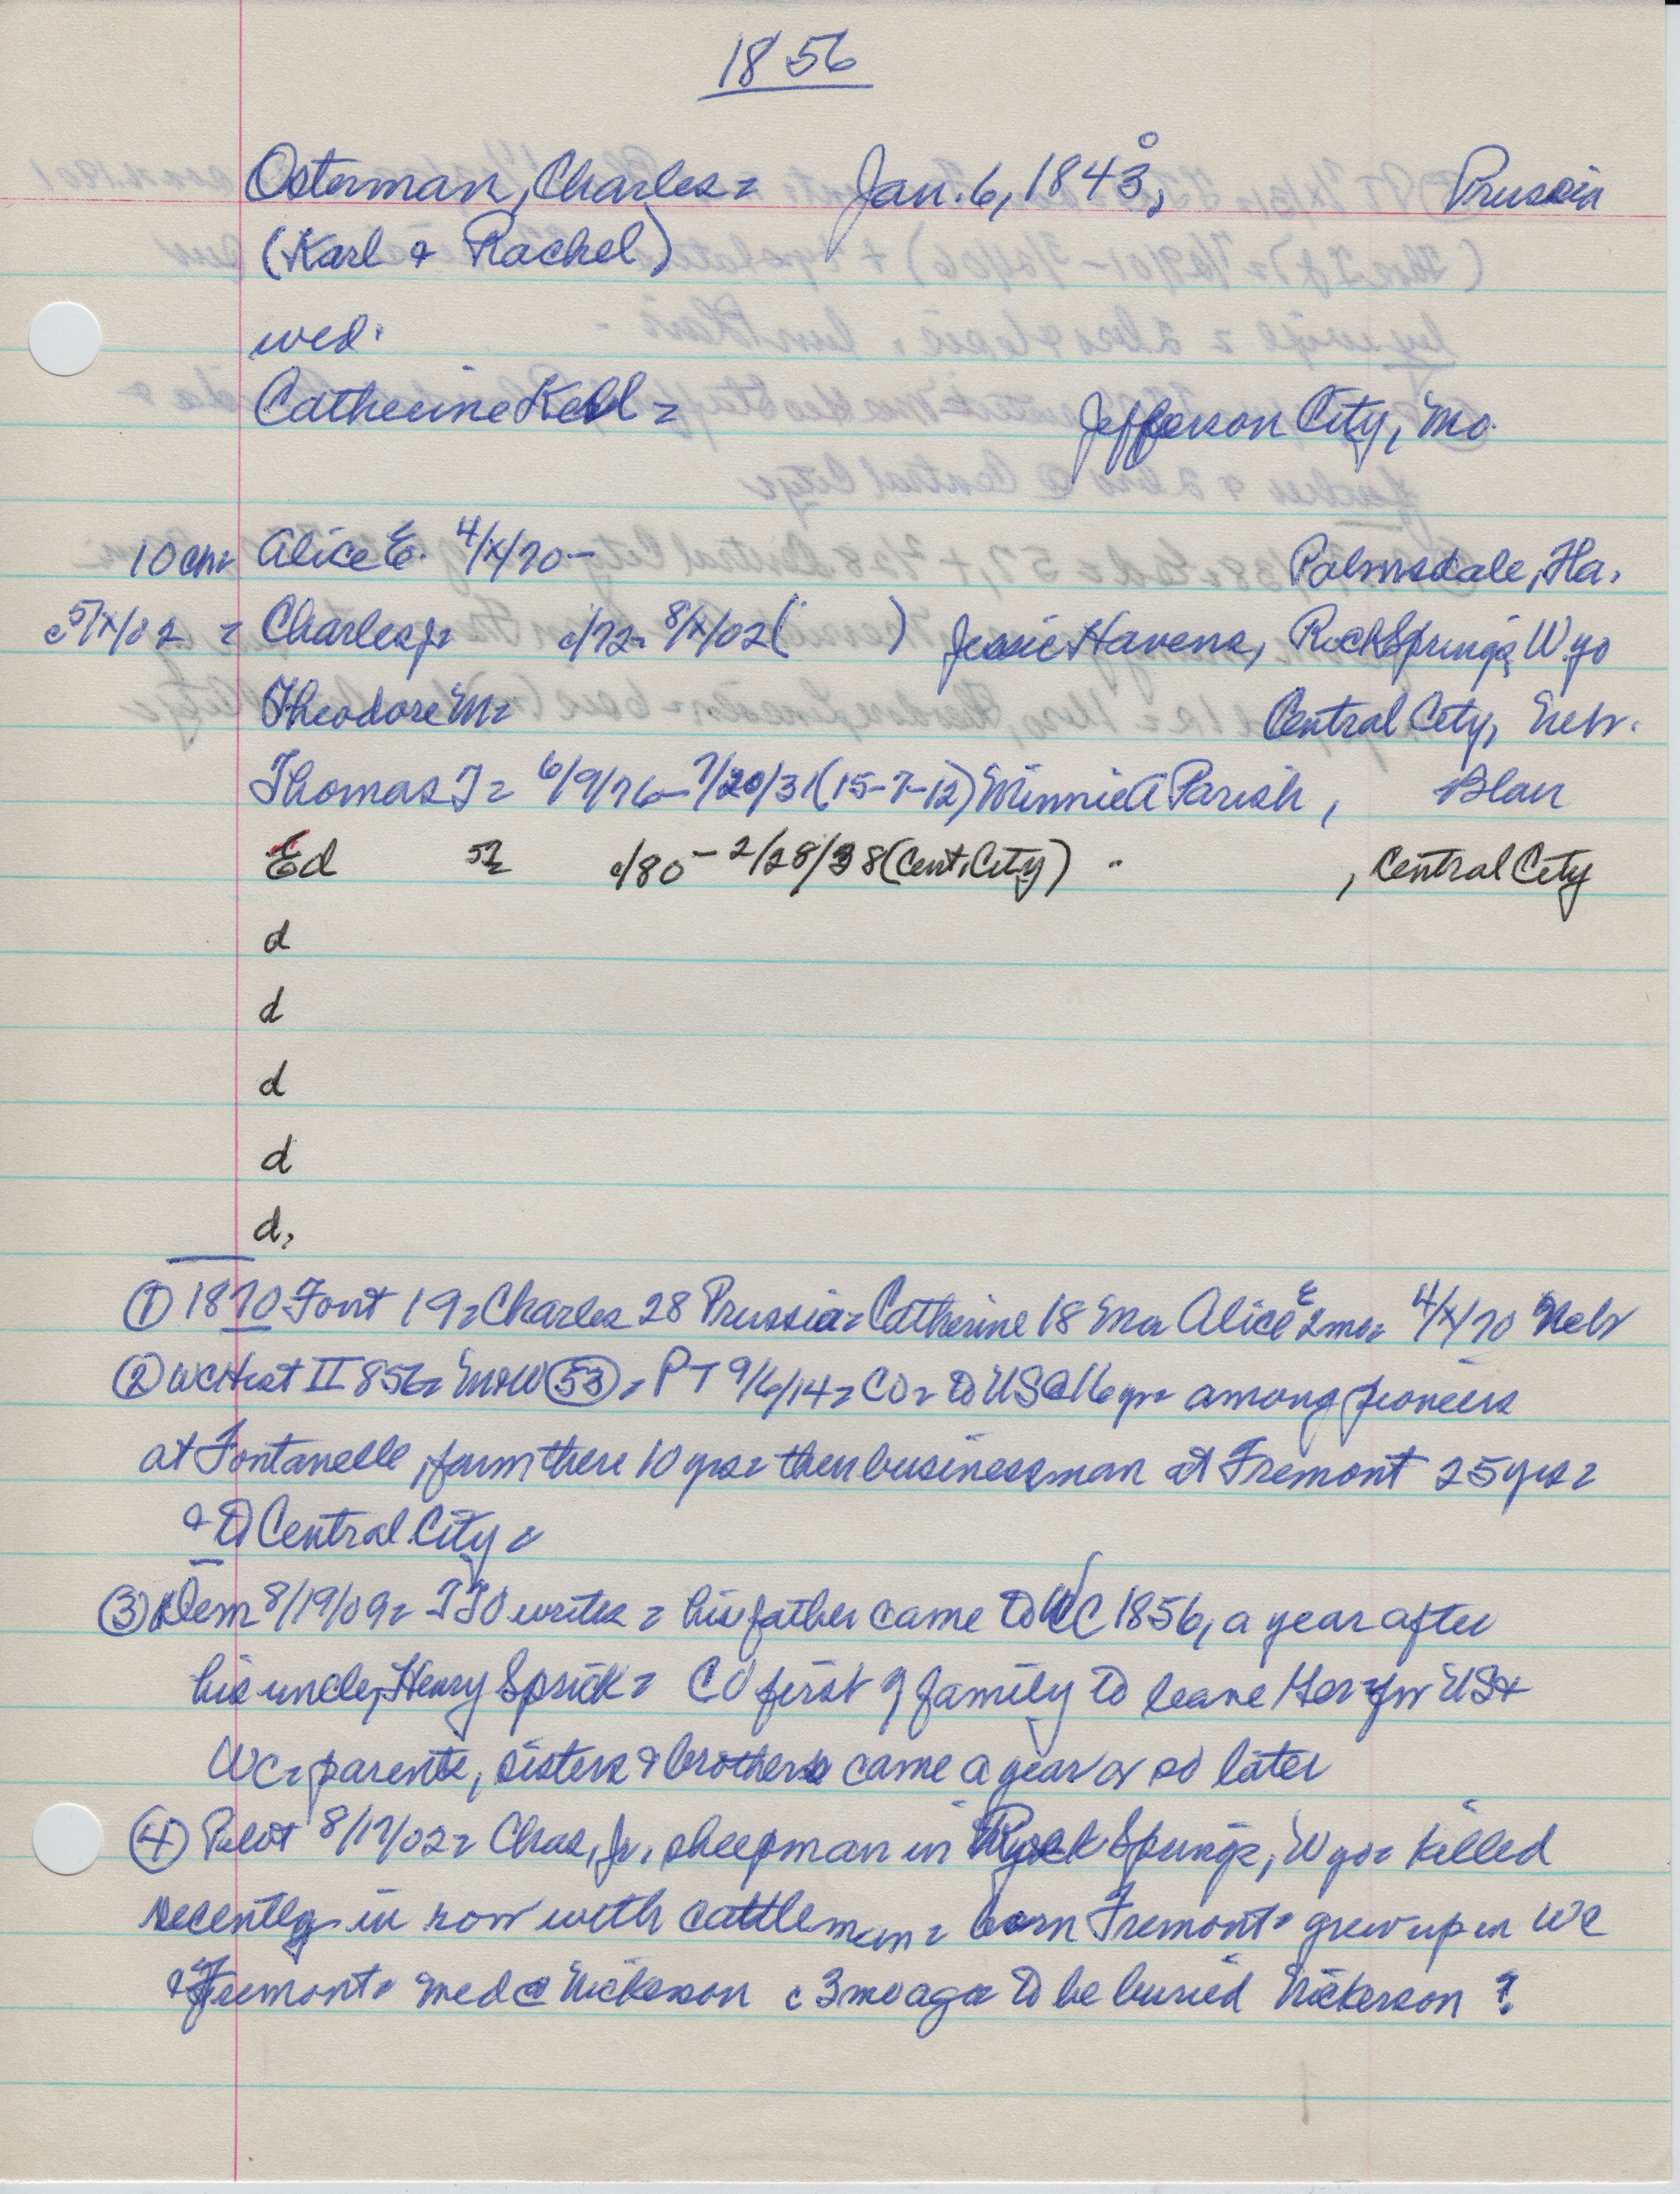 1856
Osterman, Charles = Jan. 6, 1843, Prussia
(Karl & Rachel)
wed.
Catherine = Jefferson City, Mo.
10 chn Alice E. 4/x/70 - Palmsdale, Fla.
c5/x/02 = Charles jr c/72 - 8/x/02 ( ) Jessie Havens, Rock Springs, Wyo
Theodore M = Central City, Nebr.
Thomas J = 6/9/76 - 7/20/31 (15-7-12) Minnie A Parish, Blair
Ed c/80 - 2/28/38 (Cent. City) " , Central City
d
d
d
d
d.
① 1870 Font 19 = Charles 28 Prussia = Catherine 18 Mo Alice E 2mo = 4/x/70 Nebr
② WC Hist II 856 = M&W (53) = PT 9/6/14 = CO = to US @ 16 yr = among pioneers
at Fontanelle, farm there 10 yrs = then businessman at Fremont 25 yrs =
& to Central City =
③ Dem 8/19/09 = TJO writes = his father came to WC 1856, a year after
his uncle, Henry Sprick = CO first of family to leave Ger for US &
WC = parents, sisters & brothers came a year or so later
④ Pilot 8/17/02 = Chas, Jr, sheepman in Rock Springs, Wyo = killed
recently in row with cattleman = born Fremont = grew up in WC
& Fremont = med @ Nickerson c 3 mo ago = to be buried Nickerson ?